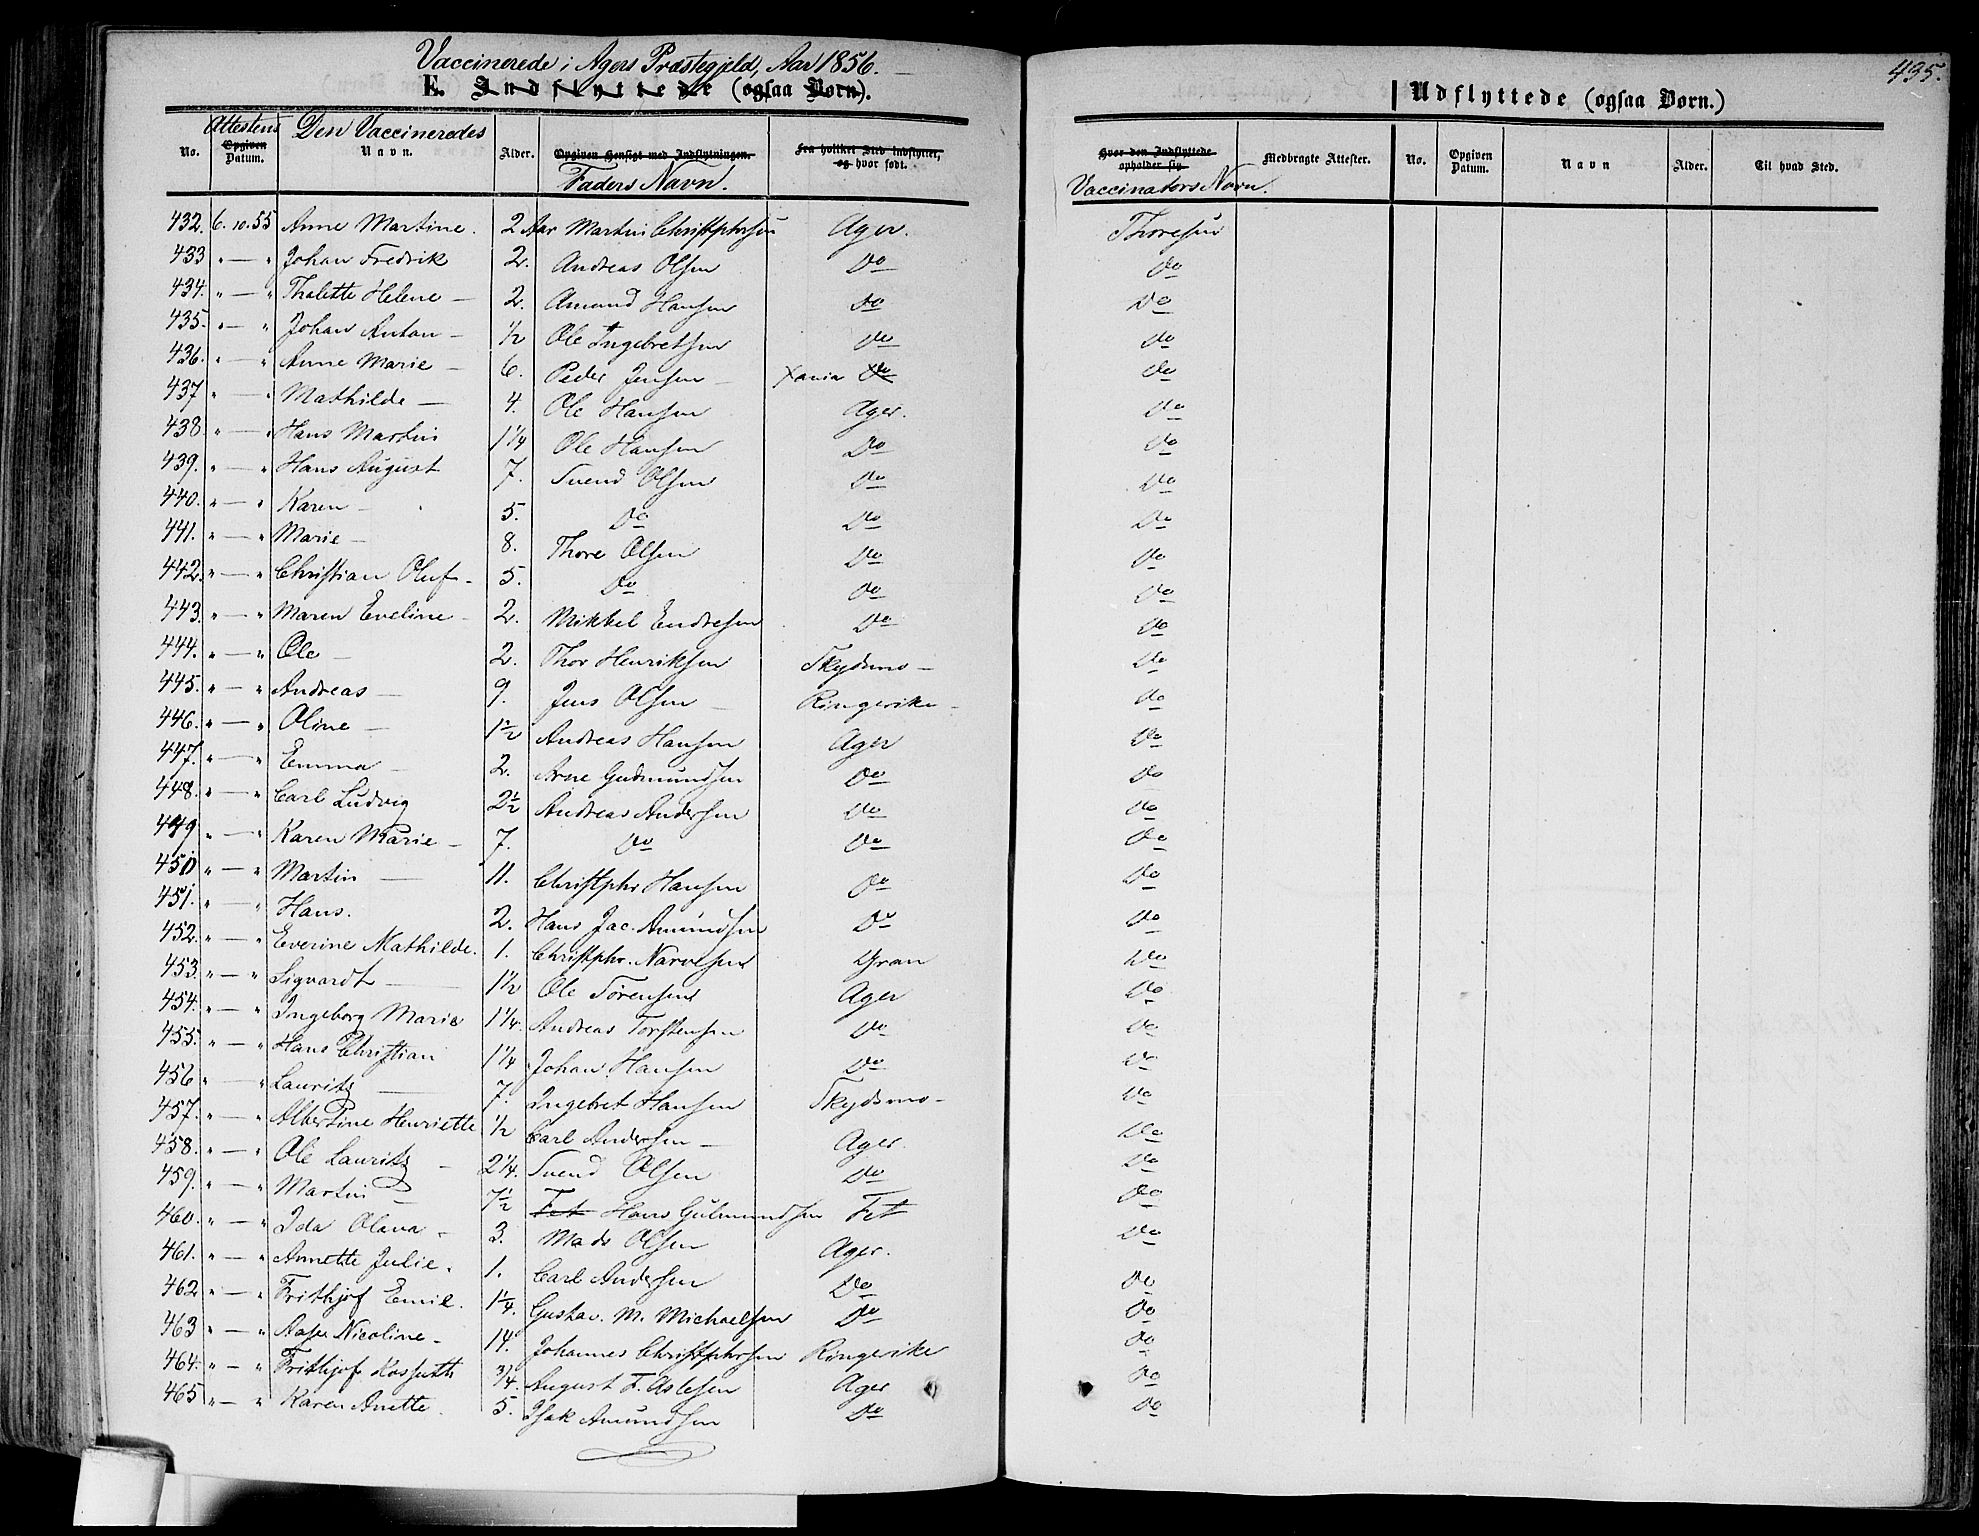 Vaccinerede i Agers Præstegjeld, Aar 1856.
E. Indflyttede (ogsaa Børn).
No. Attestens Opgiven Datum. Den Vaccineredes Navn. Alder. Opgiven Hensigt med Indflytningen. Faders Navn. Fra hvilket Sted indflyttet, og hvor født.
432. 6. 10. 55 Anne Martine. 2 Aar Martin Christphersen Ager. Thoresen
433 " — " Johan Fredrik 2. Andreas Olsen Do Do
434. " — " Thalette Helene — 2. Amund Hansen Do Do
435. " — " Johan Anton — 1/2 Ole Ingebretsen Do Do
436. " — " Anne Marie — 6. Peder Jensen — Xania Do Do
437 " — " Mathilde — 4. Ole Hansen Ager. Do
438. " — " Hans Martin 1 1/4 Ole Hansen Do Do
439. " — " Hans August 7. Svend Olsen Do Do
440. " — " Karen — 5. Do Do Do
441. " — " Marie — 8. Thore Olsen Do Do
442. " — " Christian Oluf. 5. Do Do Do
443. " — " Maren Eveline — 2. Mikkel Endresen Do Do
444. " — " Ole — 2. Thor Henriksen Skydsmo — Do
445. " — " Andreas — 9. Jens Olsen — Ringerike — Do
446. " — " Oline — 1 1/2 Andreas Hansen Ager Do
447. " — " Emma — 2. Arne Gudmundsen Do Do
448. " — " Carl Ludvig 2 1/2 Andreas Andersen Do Do
449 " — " Karen Marie — 7. Do Do Do
450 " — " Martin — 11. Christphr Hansen Do Do
451. " — " Hans. 2. Hans Jac. Amundsen Do Do
452. " — " Everine Mathilde. 1. Christphr. Narvesen Gran Do
453. " — " Sigvardt — 1 1/2 Ole Sørensen Ager Do
454. " — " Ingeborg Marie 1 1/4. Andreas Torstensen Do Do
455. " — " Hans Christian 1 1/4 Johan Hansen Do Do
456 " — " Lauritz — 7. Ingebret Hansen Skydsmo — Do
457. " — " Albertine Henriette 1/2 Carl Andersen — Ager. Do
458. " — " Ole Lauritz — 2 1/4. Svend Olsen Do Do
459. " — " Martin — 7 1/2 Fet Hans Gulmundsen Fet Do
460. " — " Ida Olava — 3. Mads Olsen Ager. Do
461. " — " Annette Julie. 1. Carl Andersen Do Do
462 " — " Frithjof Emil. 1 1/4. Gustav. M. Michaelsen Do Do
463 " — " Aase Nicoline — 14. Johannes Christphersen Ringerike Do
464. " — " Frithjof Kossuth 3/4. August F. Aslesen Ager Do
465 " — " Karen Anette. 5. Isak Amundsen Do Do
435.
Udflyttede (ogsaa Børn.)
Hvor den Indflyttede opholder sig. Vaccinators Navn. Medbragte Attester. No. Opgiven Datum. Navn Alder. Til hvad Sted.